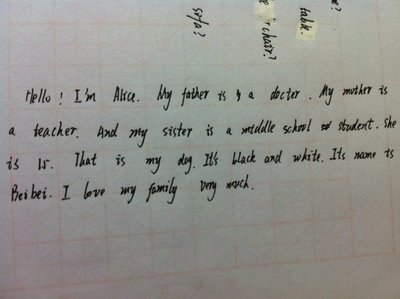 sofa?
chair?
table.
Hello! I'm Alice. My father is a docter. My mother is
a teacher. And my sister is a middle school student. She
is 15. That is my dog. It's black and white. Its name is
Beibei. I love my family very much.